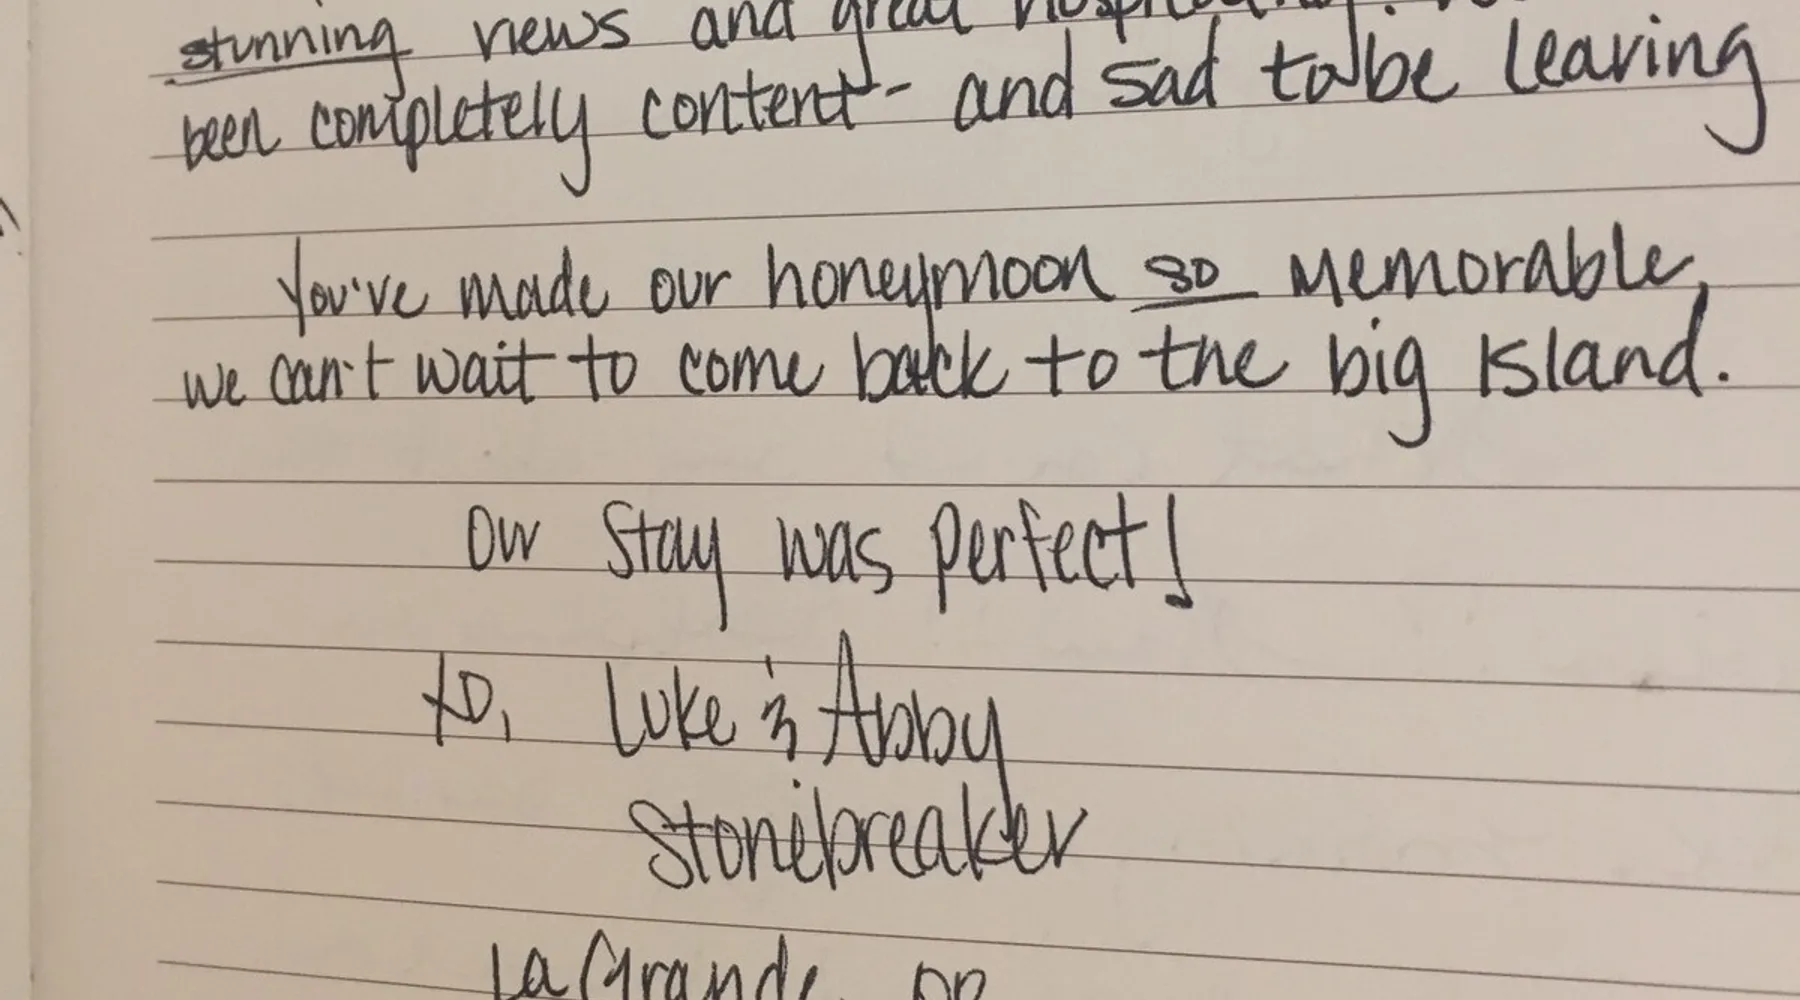 stunning views and great hospitality.
been completely content - and sad to be leaving
You've made our honeymoon so memorable,
we can't wait to come back to the big Island.
Our stay was perfect!
xo, Luke & Abby
Stonebreaker
La Grande, OR